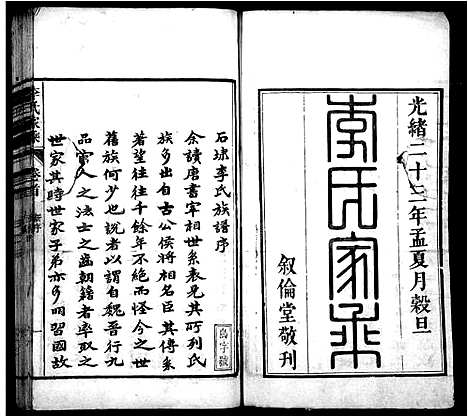 光緒二十三年孟夏月穀旦
李氏家乘
叙倫堂敬刊
石埭李氏族譜序
余讀唐書宰相世系表見其所列氏
族多出自古公侯將相名臣其傳系
若望往往千餘年不絕而怪今之世
舊族何少也說者以謂自魏晉行九
品官人之法士之齒朝籍者率取之
世家其時世家子弟亦多明習國故
李氏家乘
卷首